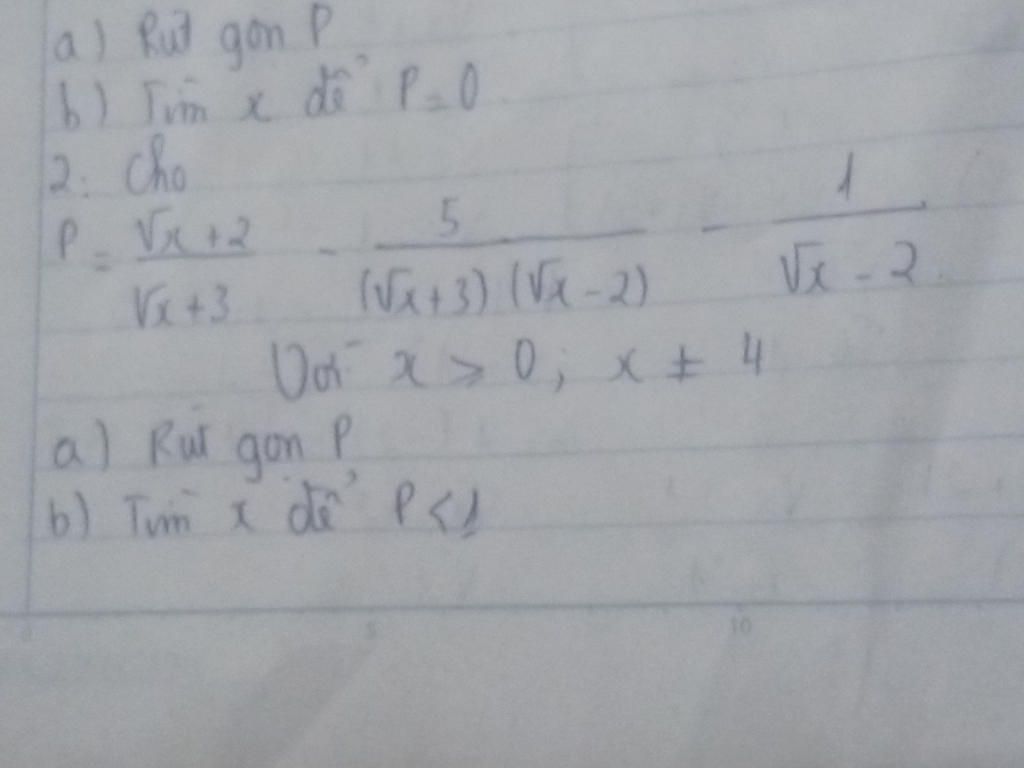 a) Rút gọn P
b) Tìm x để P = 0
2. Cho
P = √x + 2 / √x + 3 - 5 / (√x + 3) (√x - 2) - 1 / √x - 2
Với x > 0 ; x ≠ 4
a) Rút gọn P
b) Tìm x để P < 1
5 10